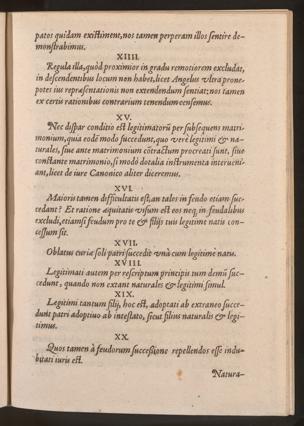 patos quidam existiment, nos tamen perperam illos sentire de-
monstrabimus.
XIIII.
Regula illa, quòd proximior in gradu remotiorem excludat,
in descendentibus locum non habet, licet Angelus vltra prone-
potes ius repræsentationis non extendendum sentiat: nos tamen
ex certis rationibus contrarium tenendum censemus.
XV.
Nec dispar conditio est legitimatorũ per subsequens matri-
monium, quia eodẽ modo succedunt, quo verè legitimi & na-
turales, siue ante matrimonium cõtractum procreati sunt, siue
constante matrimonio, si modò dotalia instrumenta interueni-
ant, licet de iure Canonico aliter diceremus.
XVI.
Maioris tamen difficultatis est, an tales in feudo etiam suc-
cedant? Et ratione æquitatis visum est eos neq; in feudalibus
excludi, etiamsi feudum pro te & filijs tuis legitimè natis con-
cessum sit.
XVII.
Oblatus curiæ soli patri succedit vnà cum legitimè natu.
XVIII.
Legitimati autem per rescriptum principis tum demũ suc-
cedunt, quando non extant naturales & legitimi simul.
XIX.
Legitimi tantum filij, hoc est, adoptati ab extraneo succe-
dunt patri adoptiuo ab intestato, sicut filius naturalis & legi-
timus.
XX.
Quos tamen à feudorum successione repellendos esse indu-
bitati iuris est.
Natura-